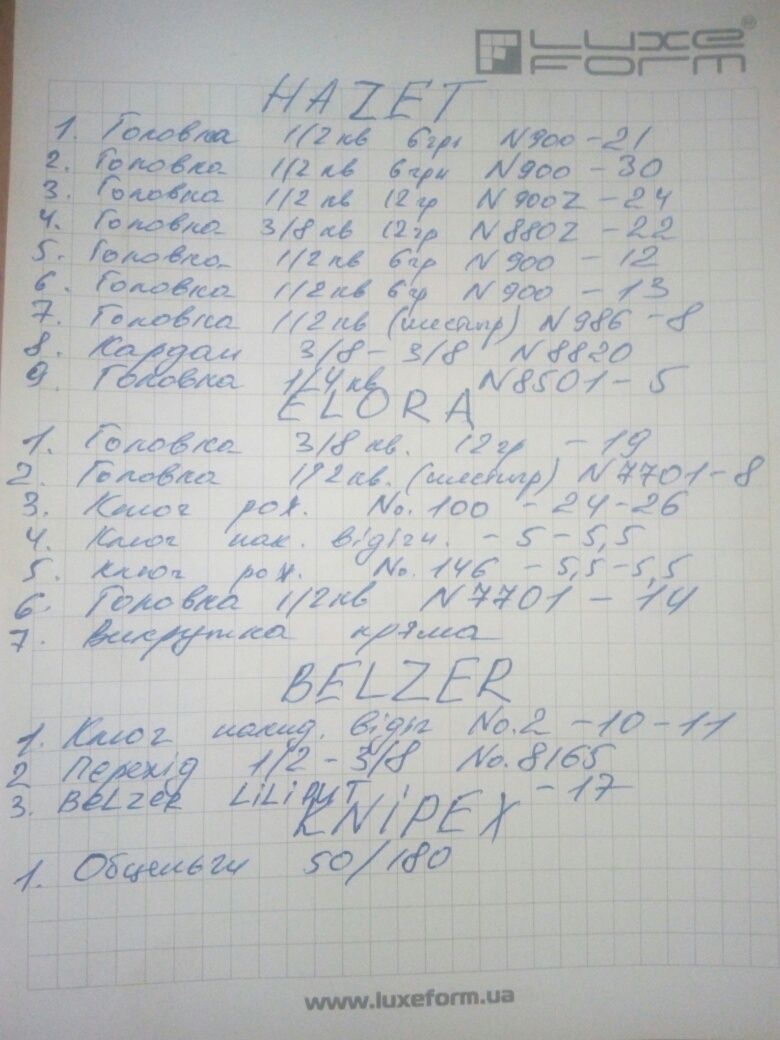 LUXE FORM®
HAZET
1. Головка 1/2 кв 6 грн N 900 - 21
2. Головка 1/2 кв 6 грн N 900 - 30
3. Головка 1/2 кв 12 гр N 900Z - 24
4. Головка 3/8 кв 12 гр N 880Z - 22
5. Головка 1/2 кв 6 гр N 900 - 12
6. Головка 1/2 кв 6 гр N 900 - 13
7. Головка 1/2 кв (шестигр) N 986 - 8
8. Кардан 3/8 - 3/8 N 8820
9. Головка 1/4 кв N 8501 - 5
ELORA
1. Головка 3/8 кв. 12 гр - 19
2. Головка 1/2 кв. (шестигр) N 7701 - 8
3. Ключ рож. No. 100 - 24 - 26
4. Ключ нак. відігн. - 5 - 5,5
5. ключ рож. No. 146 - 5,5 - 5,5
6. Головка 1/2 кв N 7701 - 14
7. Викрутка пряма
BELZER
1. Ключ накид. відіг No. 2 - 10 - 11
2 Перехід 1/2 - 3/8 No. 8165
3. BELZER LiLiPUT - 17
KNiPEX
1. Обценьги 50/180
www.luxeform.ua